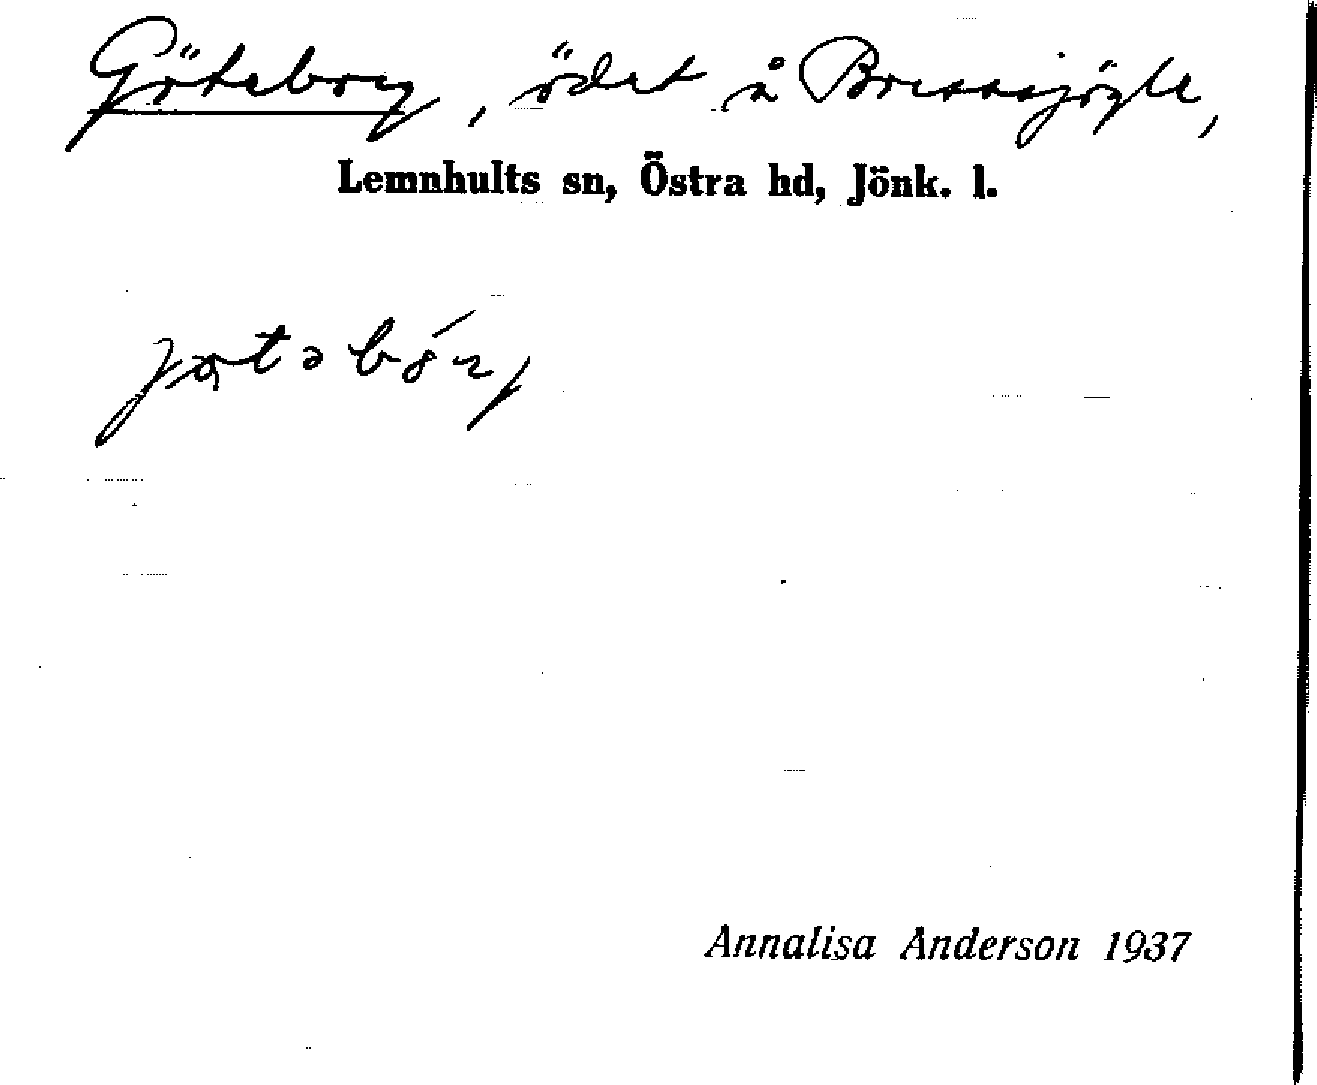 Göteborg, ödet å
Lemnhults sn, Östra hd, Jönk. l.
Annalisa Anderson 1937